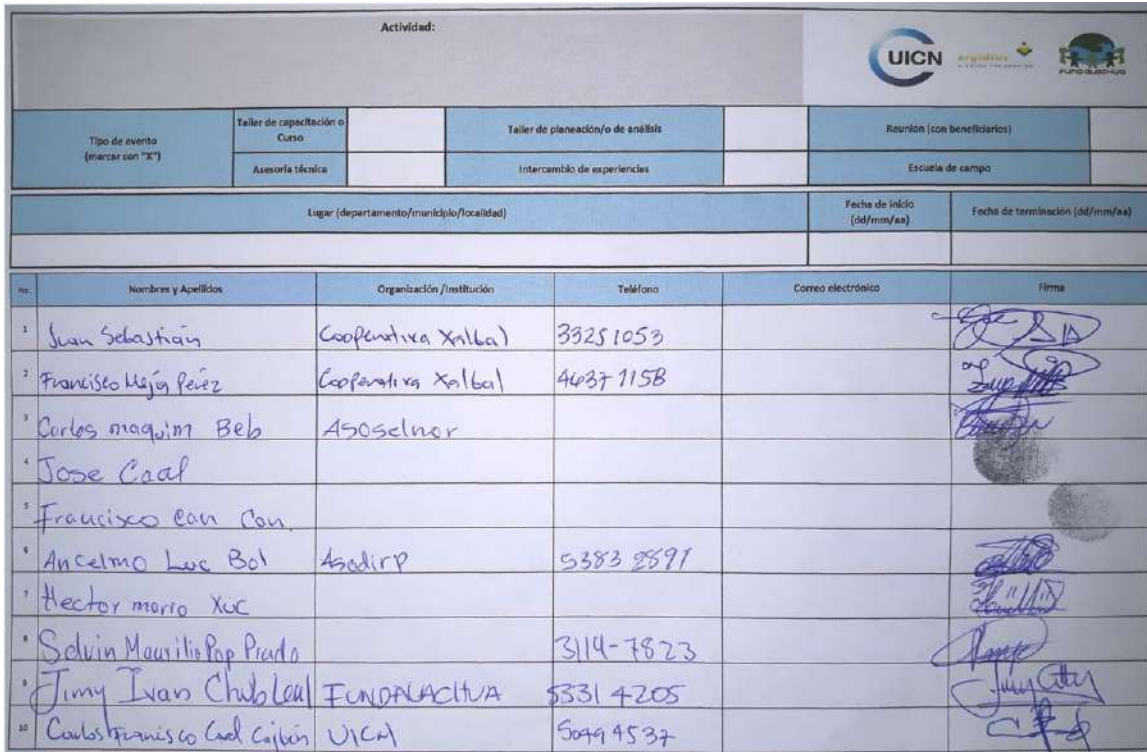 Actividad:
UICN
argidius
FUNDALACHUA
Tipo de evento
(marcar con "X")
Taller de capacitación o
Curso
Taller de planeación/o de análisis
Reunión (con beneficiarios)
Asesoría técnica
Intercambio de experiencias
Escuela de campo
Lugar (departamento/municipio/localidad)
Fecha de inicio
(dd/mm/aa)
Fecha de terminación (dd/mm/aa)
No. Nombres y Apellidos Organización /Institución Teléfono Correo electrónico Firma
1 Juan Sebastián Cooperativa Xalbal 33251053
2 Francisco Mejía Pérez Cooperativa Xalbal 4637 1158
3 Carlos maquim Beb Asoselnor
4 Jose Caal
5 Francisco Can Con.
6 Ancelmo Luc Bol Asodirp 5383 2891
7 Hector morro Xuc
8 Selvin Maurilio Pop Prado 3114-7823
9 Jimy Ivan Chub Leal FUNDALACHUA 5331 4205
10 Carlos Francisco Caal Cajbón UICN 5049 4537